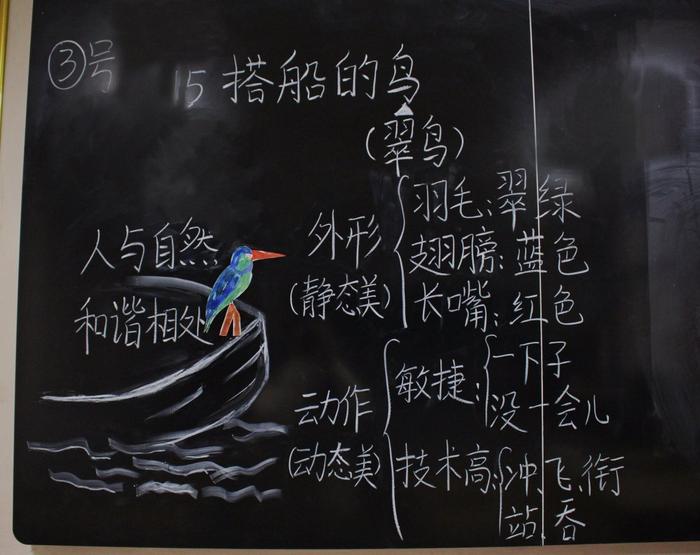 ③号
15 搭船的鸟
(翠鸟)
人与自然
和谐相处
外形
(静态美)
羽毛:翠绿
翅膀:蓝色
长嘴:红色
动作
(动态美)
敏捷:
一下子
没一会儿
技术高:
冲、飞、衔
站、吞